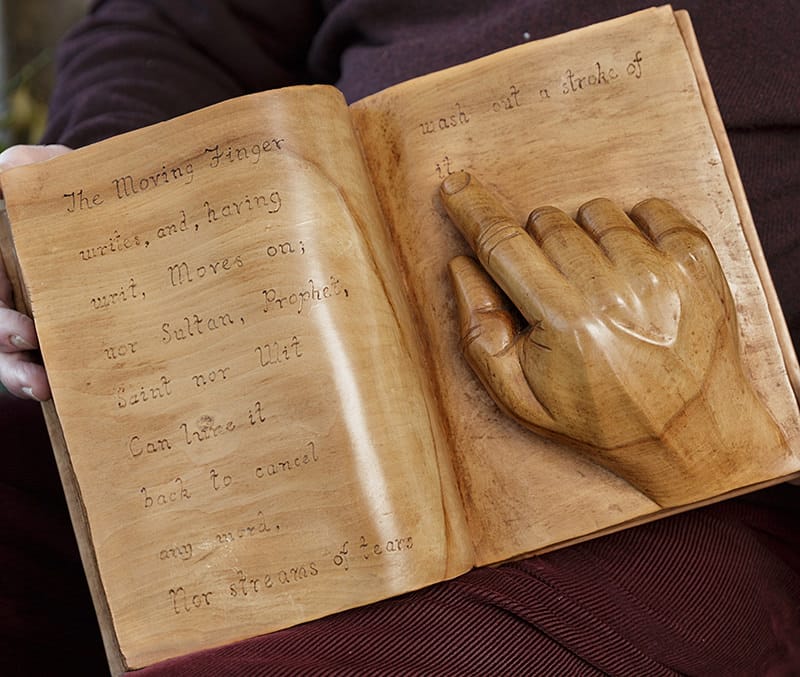 The Moving Finger
writes, and, having
writ, Moves on;
nor Sultan, Prophet,
Saint nor Wit
Can lure it
back to cancel
any word,
Nor streams of tears
wash out a stroke of
it.